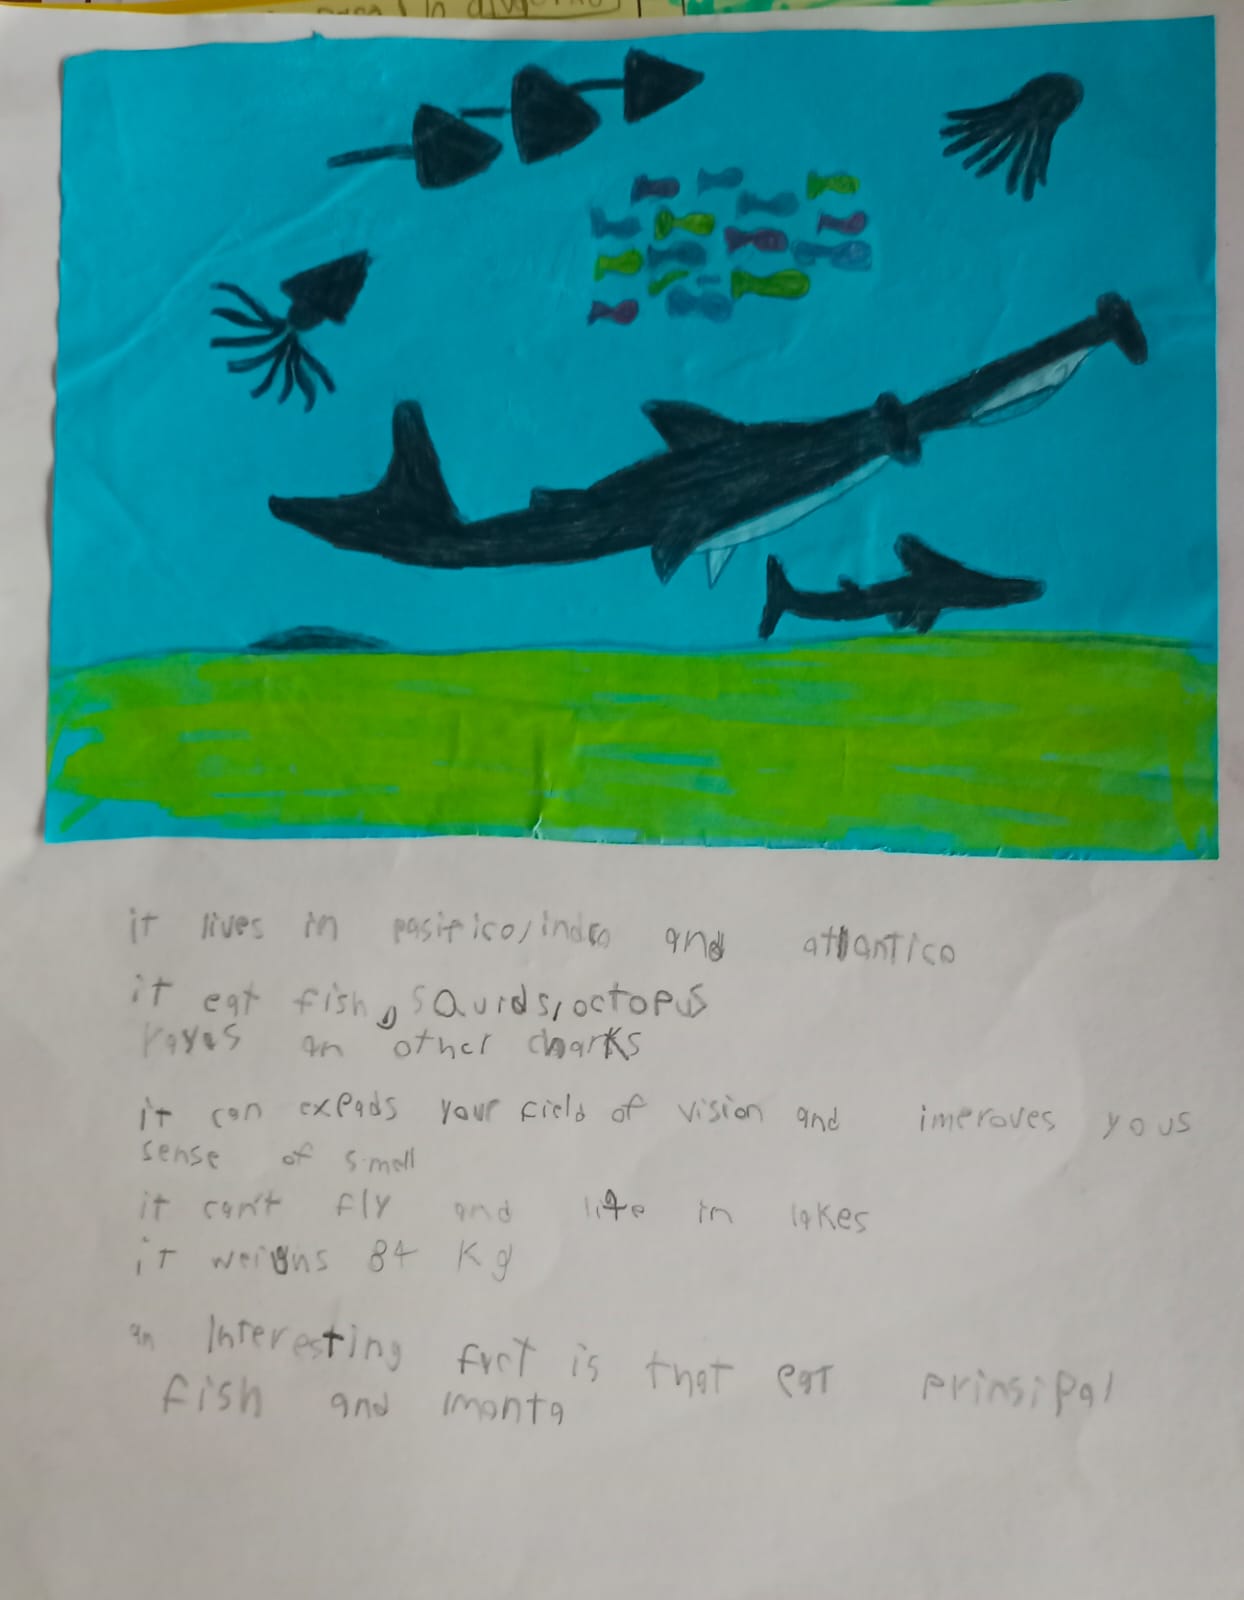 it lives in pasifico/indco and atlantico
it eat fish, squids, octopus
rayas an other charks
it can expads your field of vision and imeroves yous
sense of smell
it can't fly and life in lakes
it weighs 84 Kg
an Interesting fact is that eat prinsipal
fish and manta